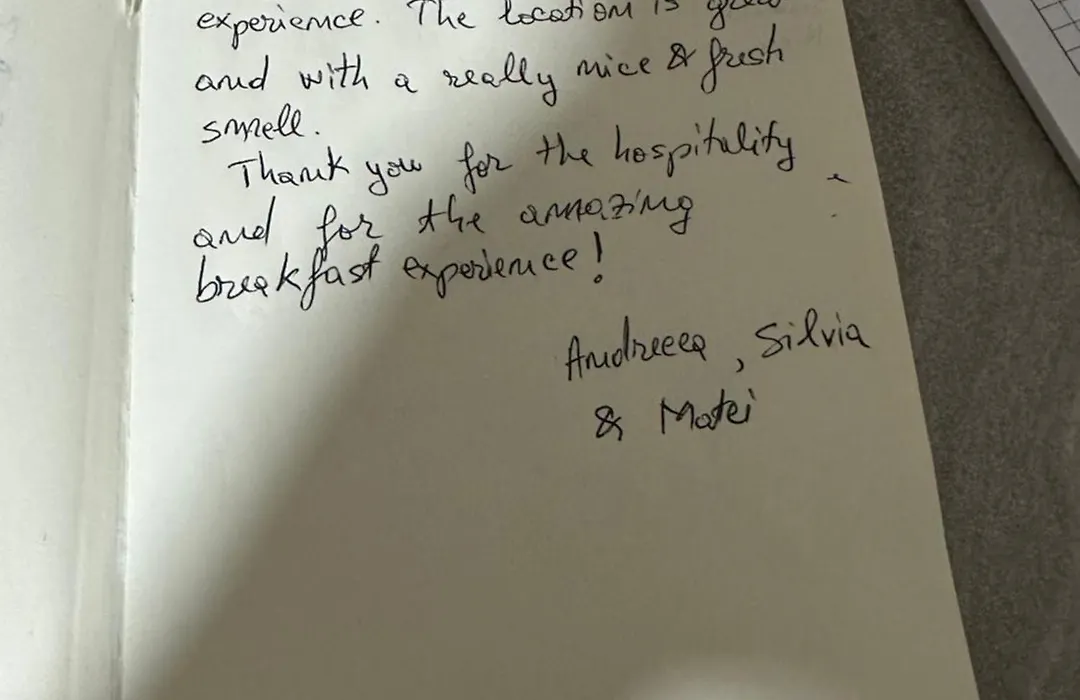 experience. The location is great
and with a really nice & fresh
smell.
Thank you for the hospitality
and for the amazing
breakfast experience!
Andreea, Silvia
& Matei